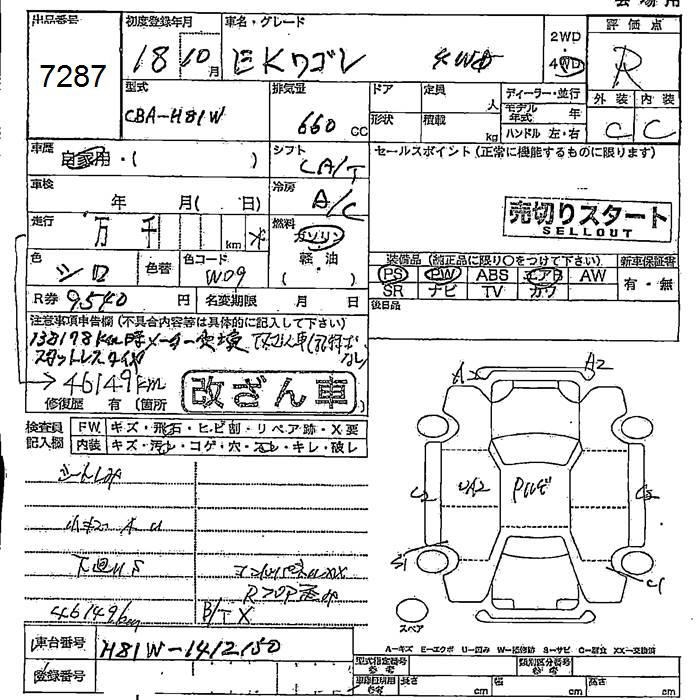 会場用
出品番号 初度登録年月 車名・グレード 評価点
7287 18 10月 EKワゴン 4WD 2WD・4WD R
型式 排気量 ドア 定員 人 ディーラー・並行 外装 内装
CBA-H81W 660 CC 形状 積載 kg モデル年式 年 C C
ハンドル 左・右
車歴 自家用・( ) シフト CA/T セールスポイント(正常に機能するものに限ります)
車検 年 月( 日) 冷房 A/C
走行 万 千 km 燃料 ガソリン 売切りスタート
SELLOUT
色 シロ 色替 色コード W09 軽・油
( )
装備品(純正品に限り○をつけて下さい) 新車保証書
PS PW ABS エアB AW 有・無
SR ナビ TV カワ
R券 9,540 円 名変期限 月 日 後日品
注意事項申告欄(不具合内容等は具体的に記入して下さい)
138198km時メーター交換
スタットレスタイヤ
→46149km 改ざん車
修復歴 有 (箇所 )
検査員記入欄 FW キズ・飛石・ヒビ割・リペア跡・X要
内装 キズ・汚れ・コゲ・穴・スレ・キレ・破レ
A2 A2
C2 UA2 C2
S1 C1
小キズ A U
下廻りS
46149km B/T X
スペア
A=キズ E=エクボ U=凹み W=補修跡 S=サビ C=腐食 XX=交換済
車台番号 H81W-1412150
登録番号
型式指定番号 参考 類別区分番号 参考
車両日時用 参考 長さ cm 幅 cm 高さ cm